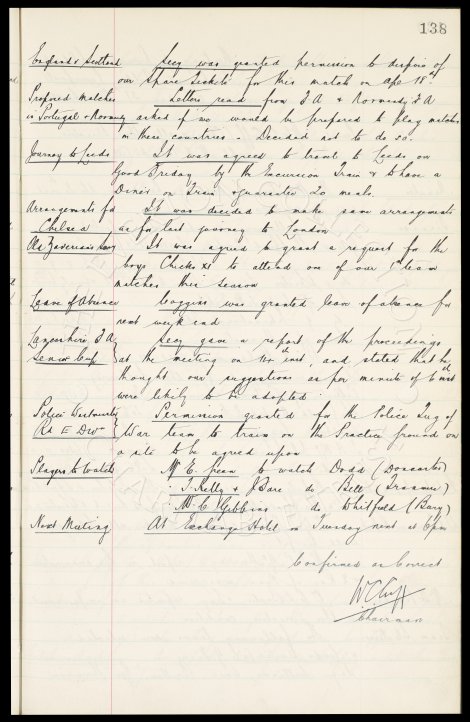 138
England v Scotland Secy was granted permission to dispose of
our Spare Tickets for this match on Apl 18th
Proposed matches Letters read from F A & Normandy F A
in Portugal & Normandy asked if we would be prepared to play matches
in these countries. Decided not to do so.
Journey to Leeds It was agreed to travel to Leeds on
Good Friday by the Excursion Train & to have a
Diner on Train & guarantee 20 meals.
Arrangements for It was decided to make same arrangements
Chelsea as for last journey to London
Old Xaverians It was agreed to grant a request for the
boys Chicks XI to attend one of our 1st team
matches this season
Leave of Absence Coggins was granted leave of absence for
next week end
Lancashire F.A. Secy gave a report of the proceedings
Senior Cup at the meeting on 14th inst, and stated that he
thought our suggestions as per minute of 6th inst
were likely to be adopted
Police Westminster Permission granted for the Police Tug of
Rd E Divn War team to train on the Practice ground on
a site to be agreed upon
Players to watch Mr E Green to watch Dodd (Doncaster)
T. Kelly & J Bare do Bell (Tranmere)
Mr C Gibbins do Whitfield (Bury)
Next Meeting At Exchange Hotel on Tuesday next at 6pm
Confirmed as Correct
W C Cuff
Chairman